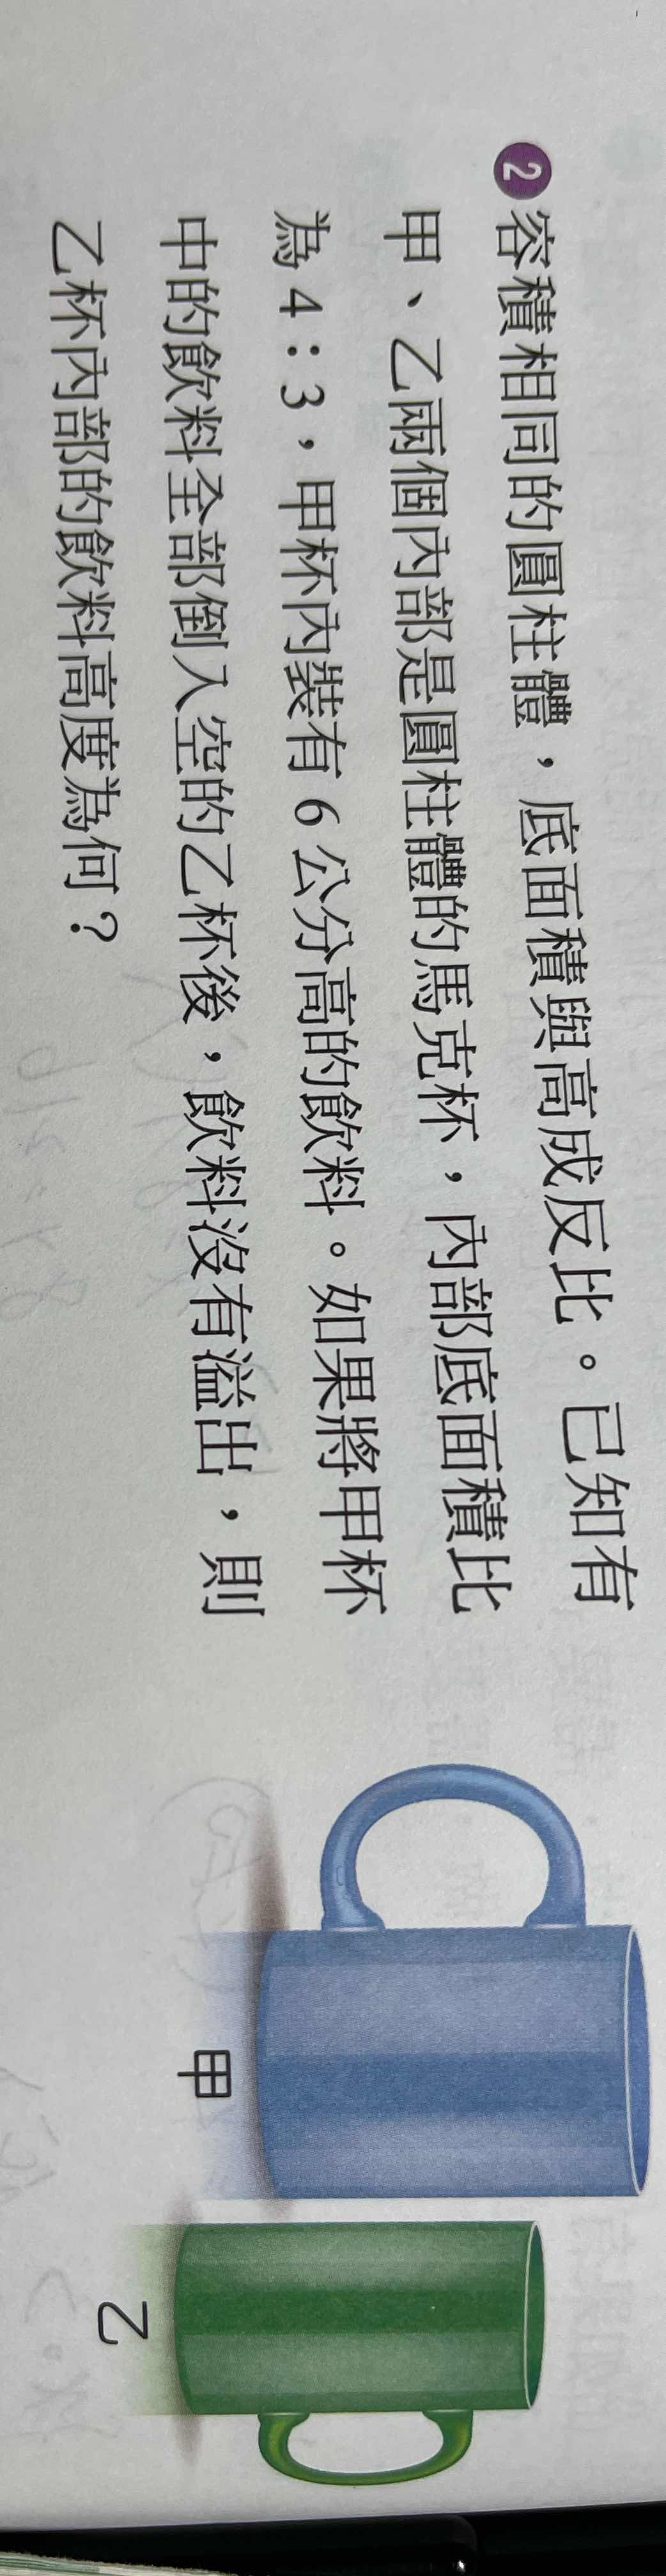 2 容積相同的圓柱體，底面積與高成反比。已知有
甲、乙兩個內部是圓柱體的馬克杯，內部底面積比
為 4：3，甲杯內裝有 6 公分高的飲料。如果將甲杯
中的飲料全部倒入空的乙杯後，飲料沒有溢出，則
乙杯內部的飲料高度為何？
甲
乙